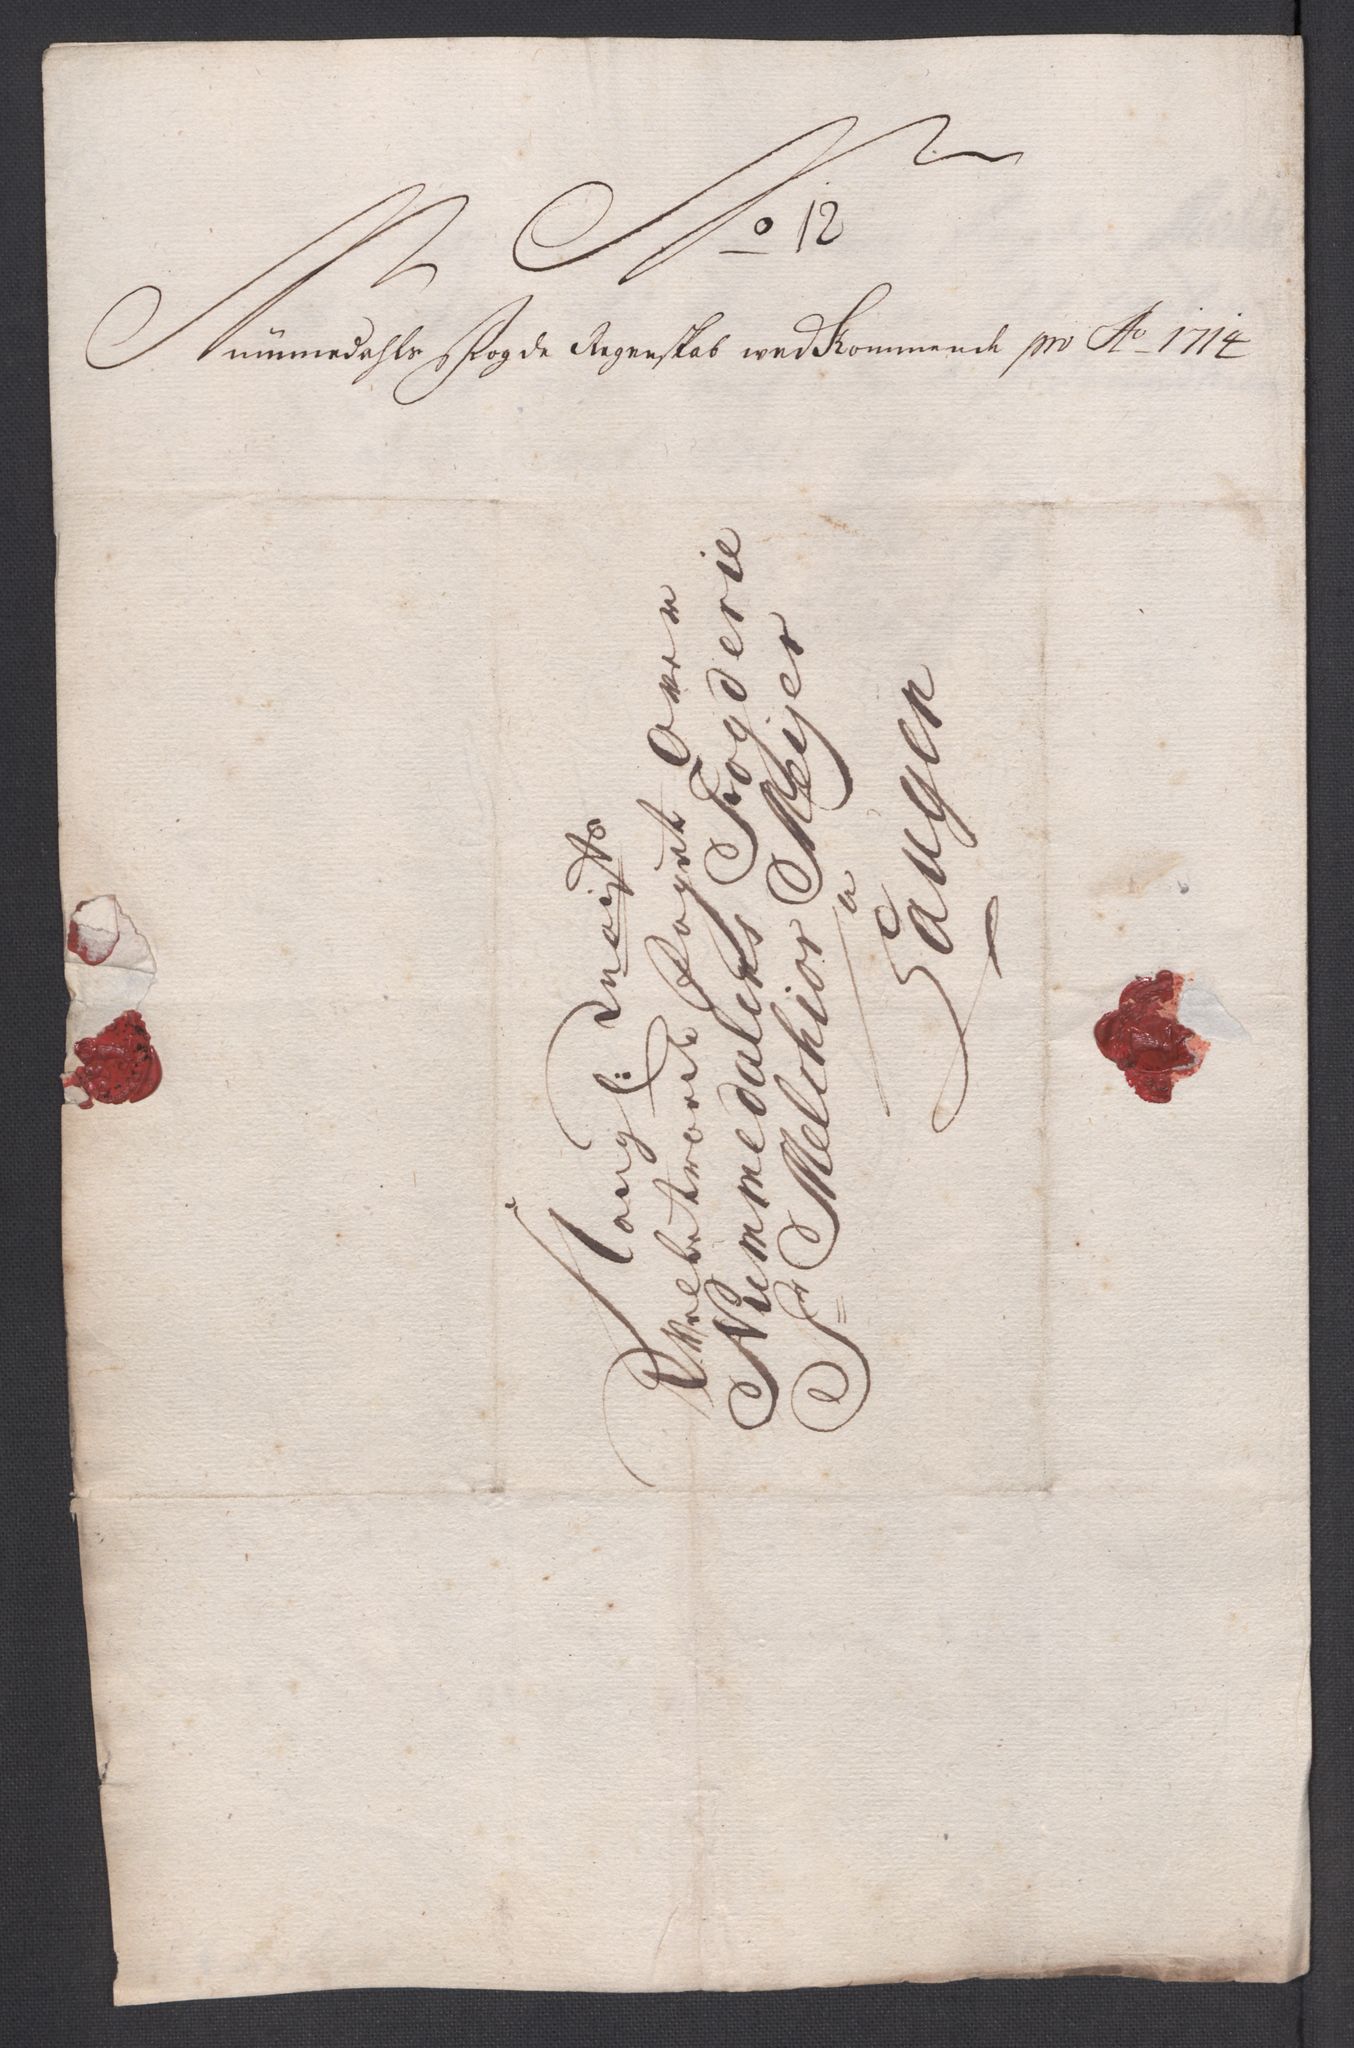 No 12
Nummedahls Fogde Regenskab wed Kommende pro Ao 1714
Kongl: Mayts
Welbetroede Foget Over
Nummedalens Fogderie
Sr Melchior Meijer
a
Taugen